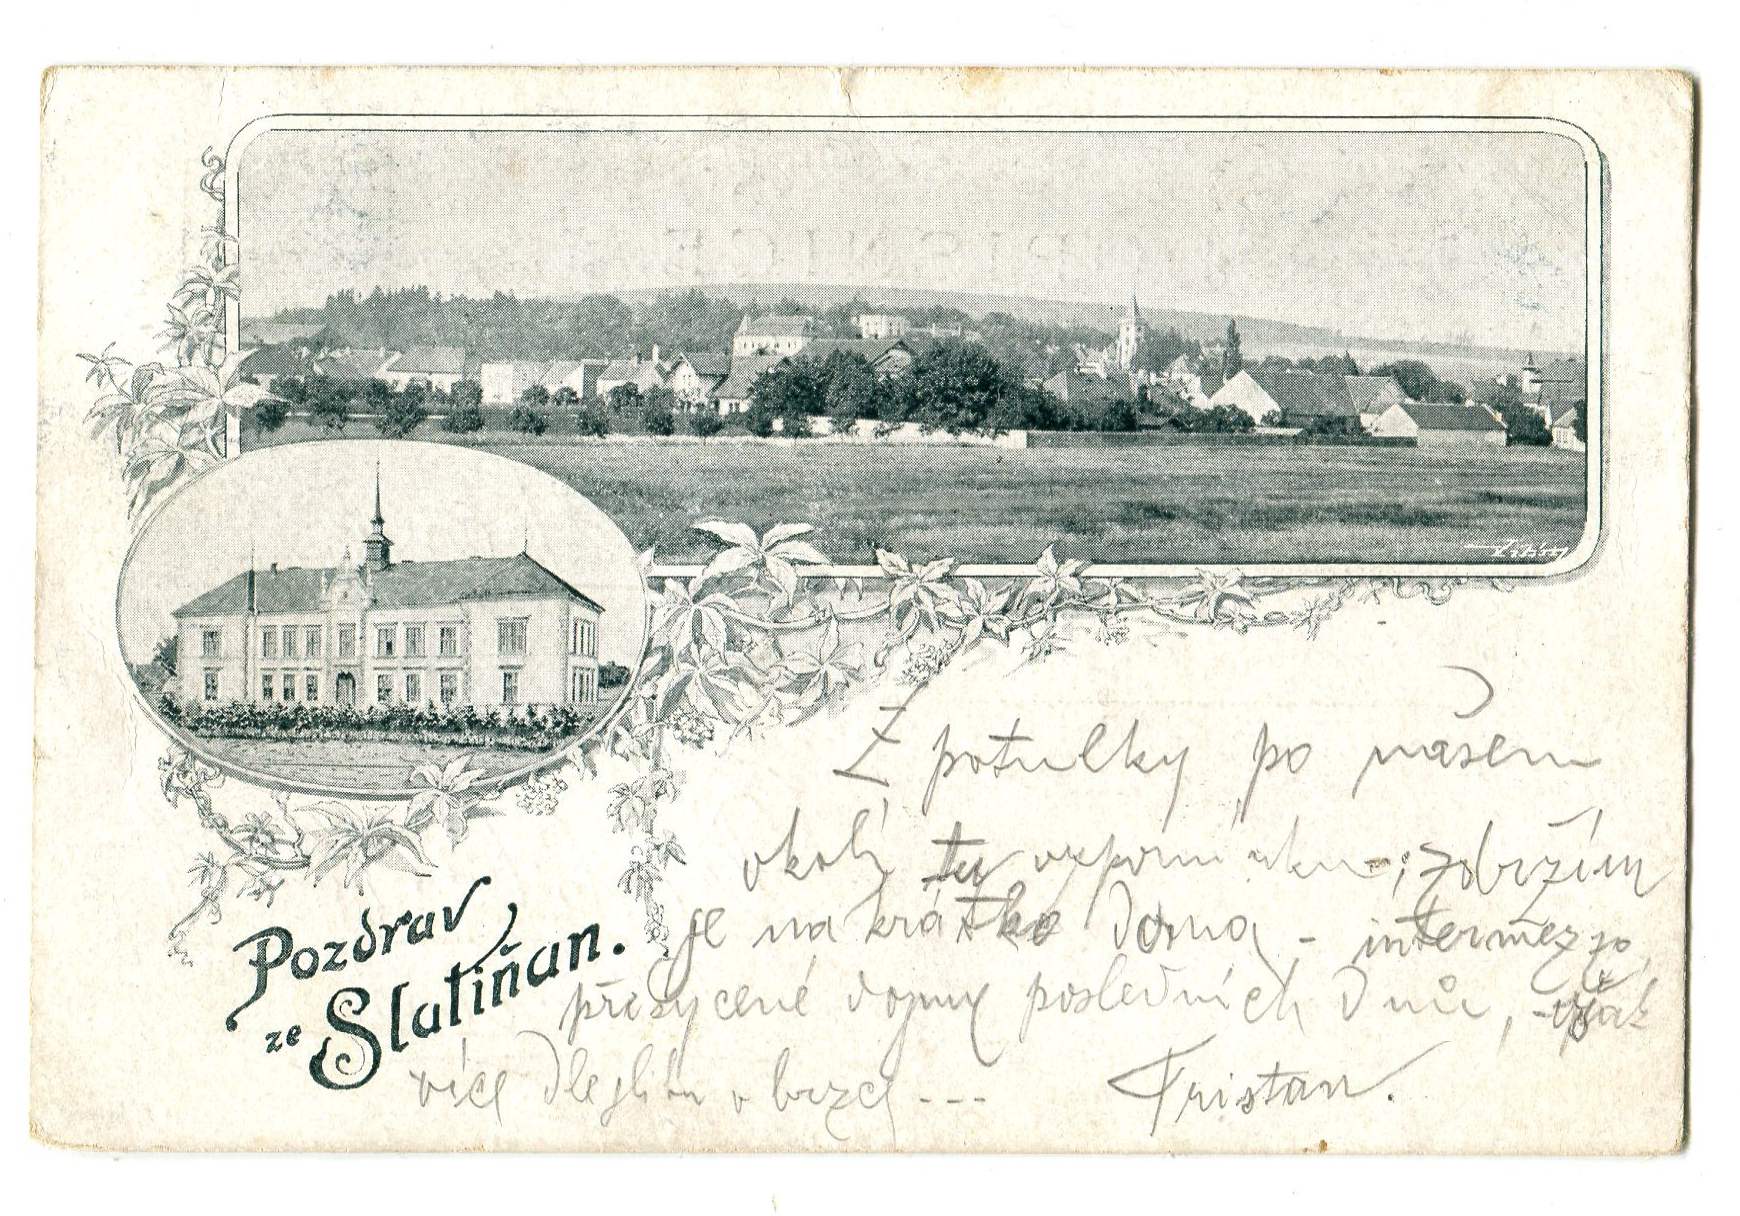 Pozdrav
ze Slatiňan.
Z potulky po našem
okolí tu vzpomínku; zdržím
je na krátko doma - intermezzo,
přesycené dojmy posledních dnů, - však
více dleším v brzce ---
Tristan.